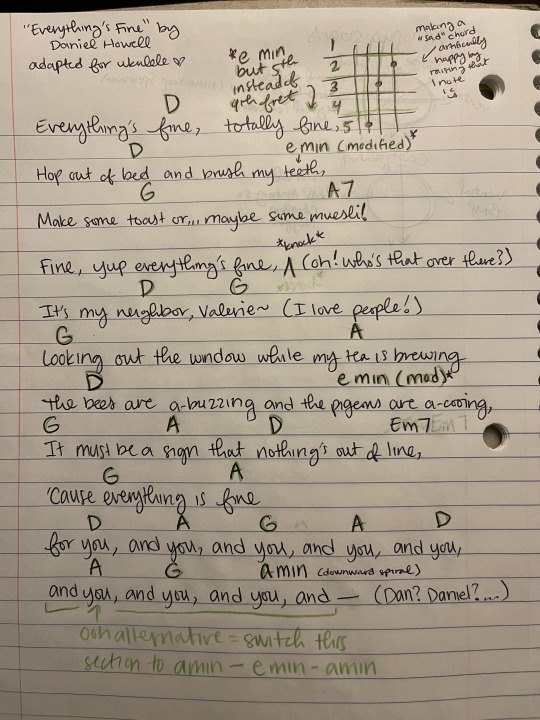 "Everything's Fine" by
Daniel Howell
adapted for ukulele ♡
*e min
but 5th
instead of
4th fret
1
2
3
4
5
making a
"sad" chord
artificially
happy by
raising that
1 note
:')
D
Everything's fine, totally fine,
D e min (modified)*
Hop out of bed and brush my teeth,
G A7
Make some toast or... maybe some muesli!
*knock*
Fine, yup everything's fine, A (oh! who's that over there?)
D G
It's my neighbor, Valerie~ (I love people!)
G A
Looking out the window while my tea is brewing
D e min (mod)*
the bees are a-buzzing and the pigeons are a-cooing,
G A D Em7
It must be a sign that nothing's out of line,
G A
'Cause everything is fine
D A G A D
for you, and you, and you, and you, and you,
A G amin (downward spiral)
and you, and you, and you, and — (Dan? Daniel?...)
ooh alternative = switch this
section to amin - emin - amin